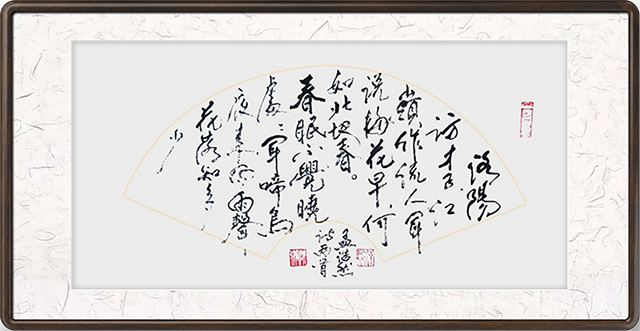 洛陽
訪才子江
嶺作流人聞
說梅花早何
如此地春。
春眠不覺曉
處〻聞啼鳥
夜來風雨聲
花落知多
少
孟浩然
詩兩首